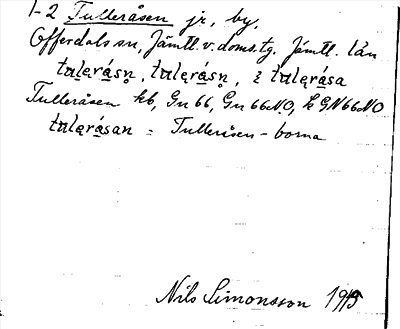 1-2 Tulleråsen jr, by,
Offerdals sn, Jämtl. v. doms. tg. Jämtl. län
tulęrásn̥, tulęrásn̥, i tulęrása
Tulleråsen kb, Gn 66, Gn 66 NO, k GN66NO
tulęrásan = Tulleråsen-borna
Nils Simonsson 1915